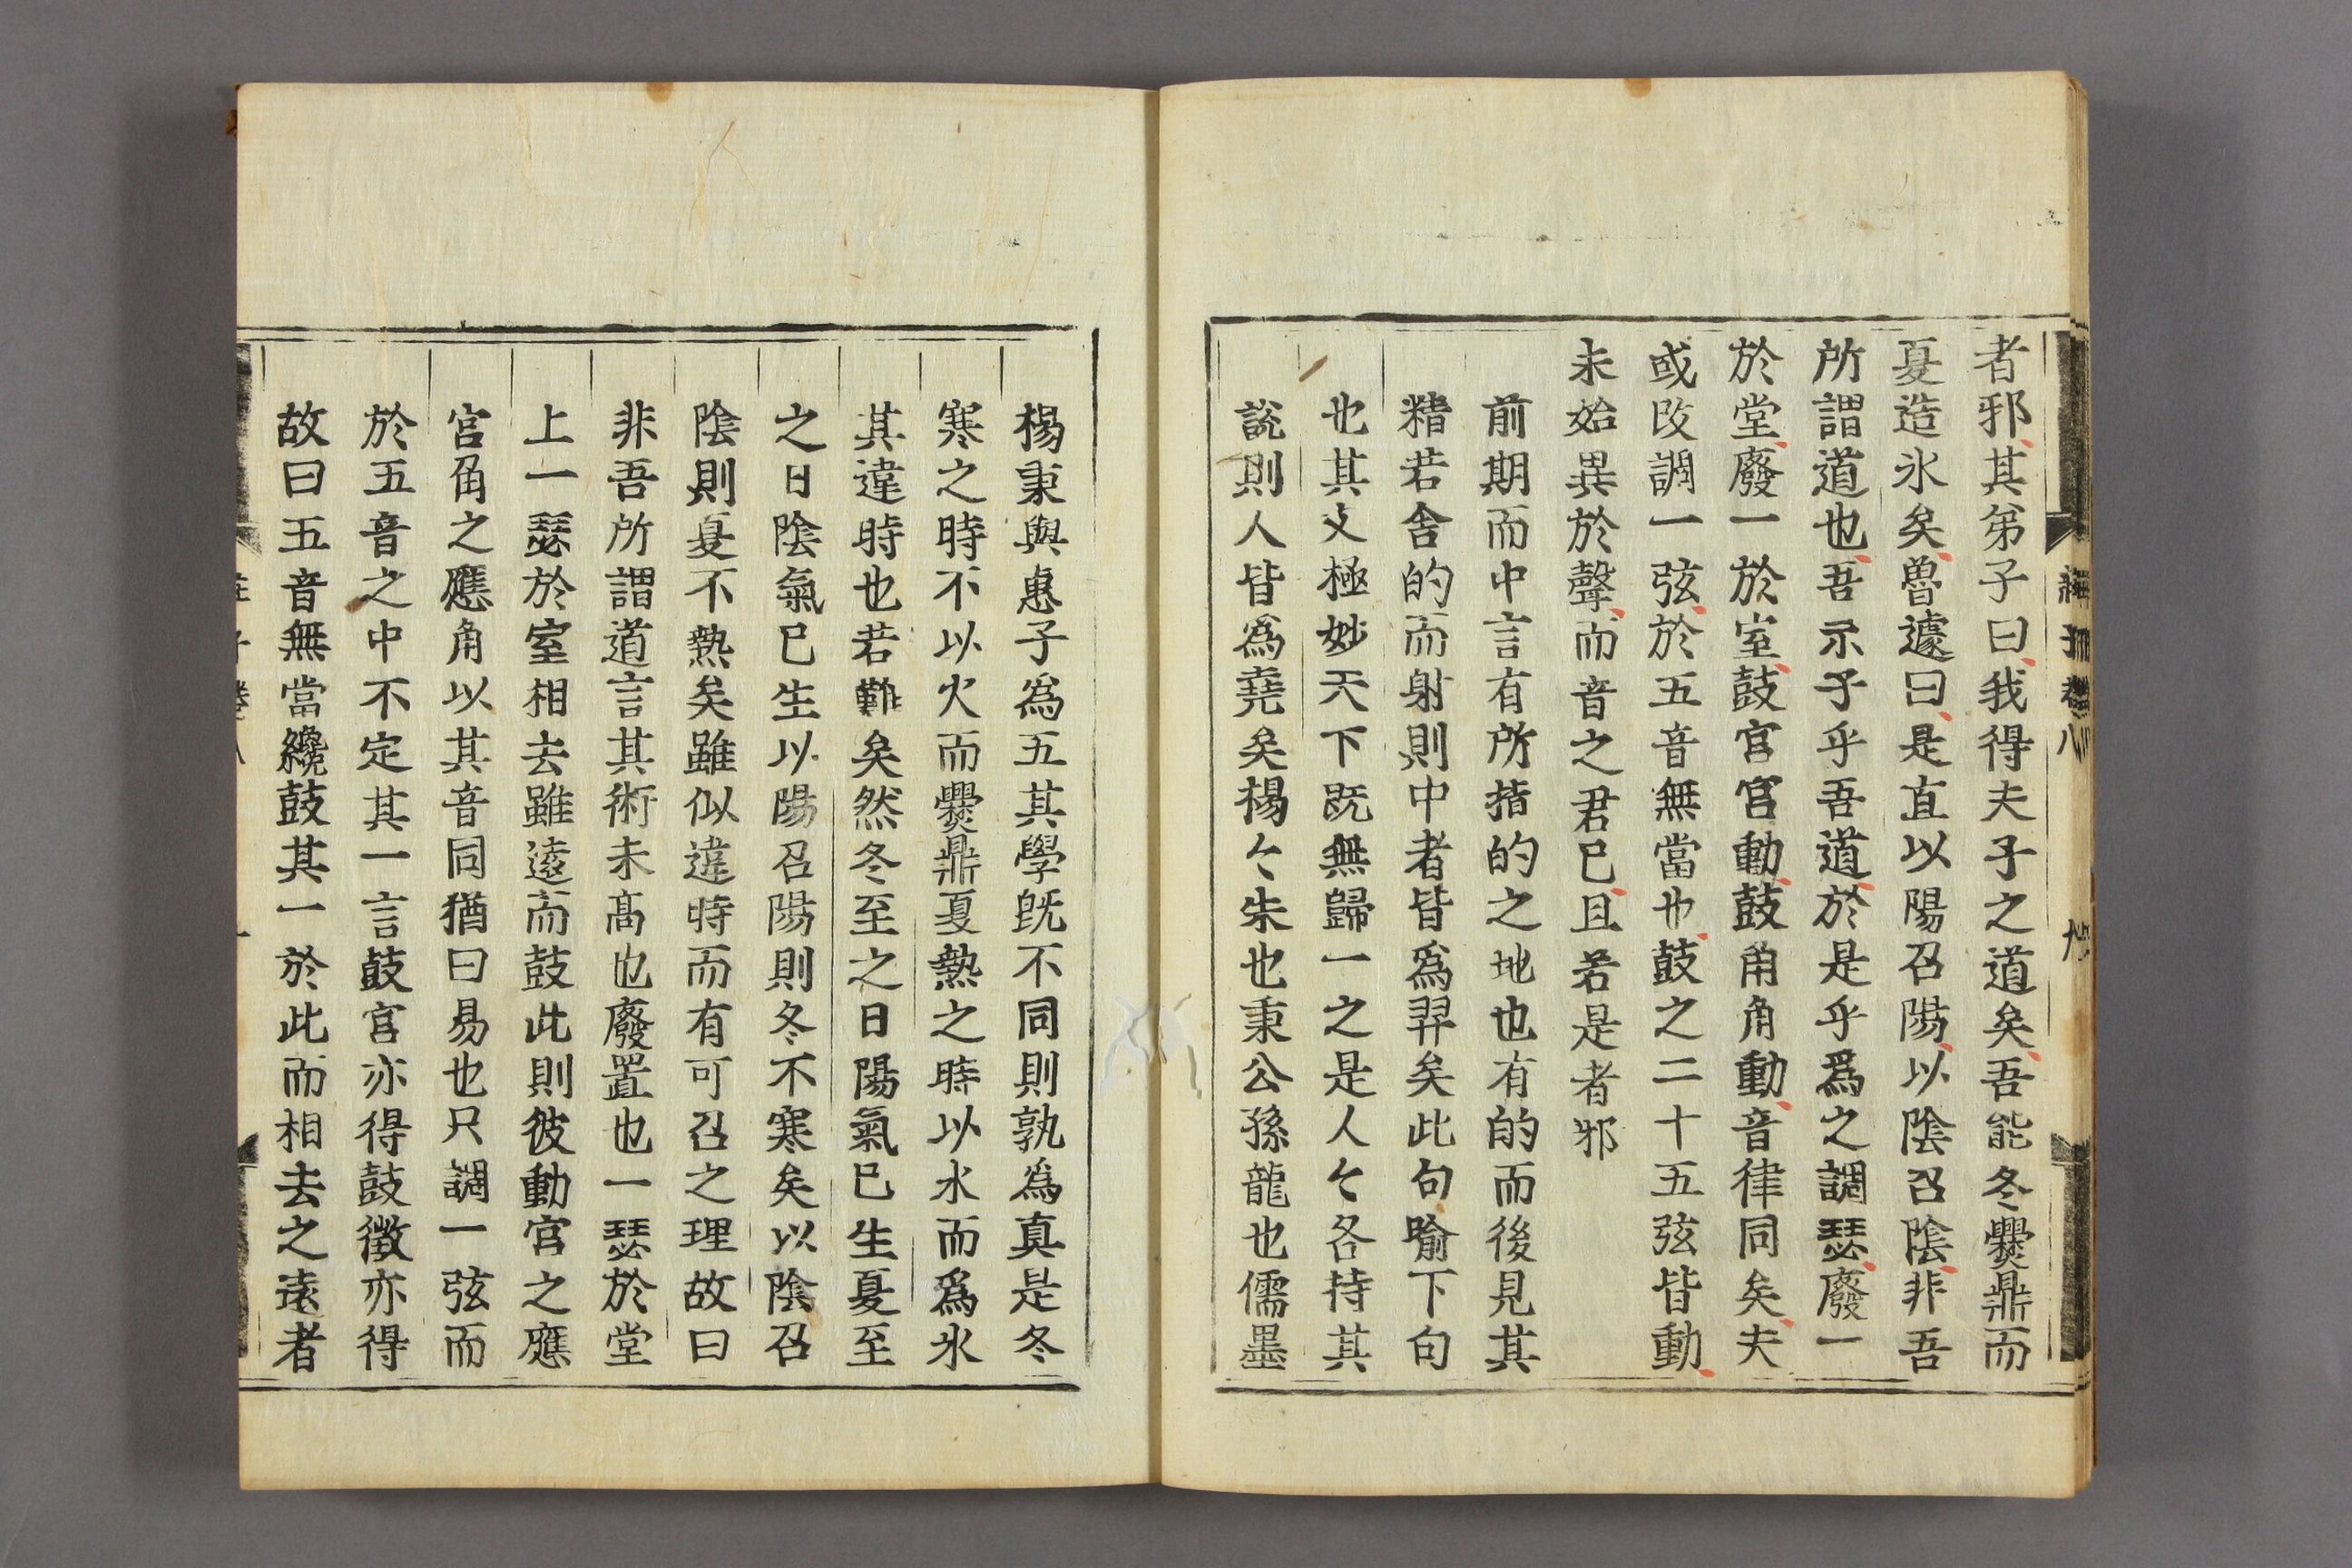 者邪其弟子曰我得夫子之道矣吾能冬爨鼎而
夏造氷矣魯遽曰是直以陽召陽以陰召陰非吾
所謂道也吾示子乎吾道於是乎爲之調瑟廢一
於堂廢一於室鼓宮宮動鼓角角動音律同矣夫
或改調一弦於五音無當也鼓之二十五弦皆動
未始異於聲而音之君已且若是者邪
前期而中言有所指的之地也有的而後見其
精若舍的而射則中者皆爲羿矣此句喻下句
也其文極妙天下既無歸一之是人々各持其
説則人皆爲堯矣楊々朱也秉公孫龍也儒墨
楊秉與惠子爲五其學既不同則孰爲真是冬
寒之時不以火而爨鼎夏熱之時以水而爲氷
其違時也若難矣然冬至之日陽氣已生夏至
之日陰氣已生以陽召陽則冬不寒矣以陰召
陰則夏不熱矣雖似違時而有可召之理故曰
非吾所謂道言其術未高也廢置也一瑟於堂
上一瑟於室相去雖遠而鼓此則彼動宮之應
宮角之應角以其音同猶曰易也只調一弦而
於五音之中不定其一言鼓宮亦得鼓徵亦得
故曰五音無當纔鼓其一於此而相去之遠者